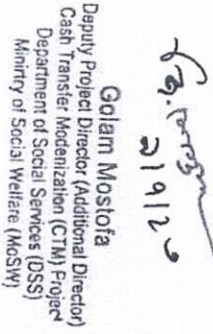 Golam Mostofa
Deputy Project Director (Additional Director)
Cash Transfer Modenization (CTM) Project
Department of Social Services (DSS)
Minirtry of Social Welfare (MoSW)